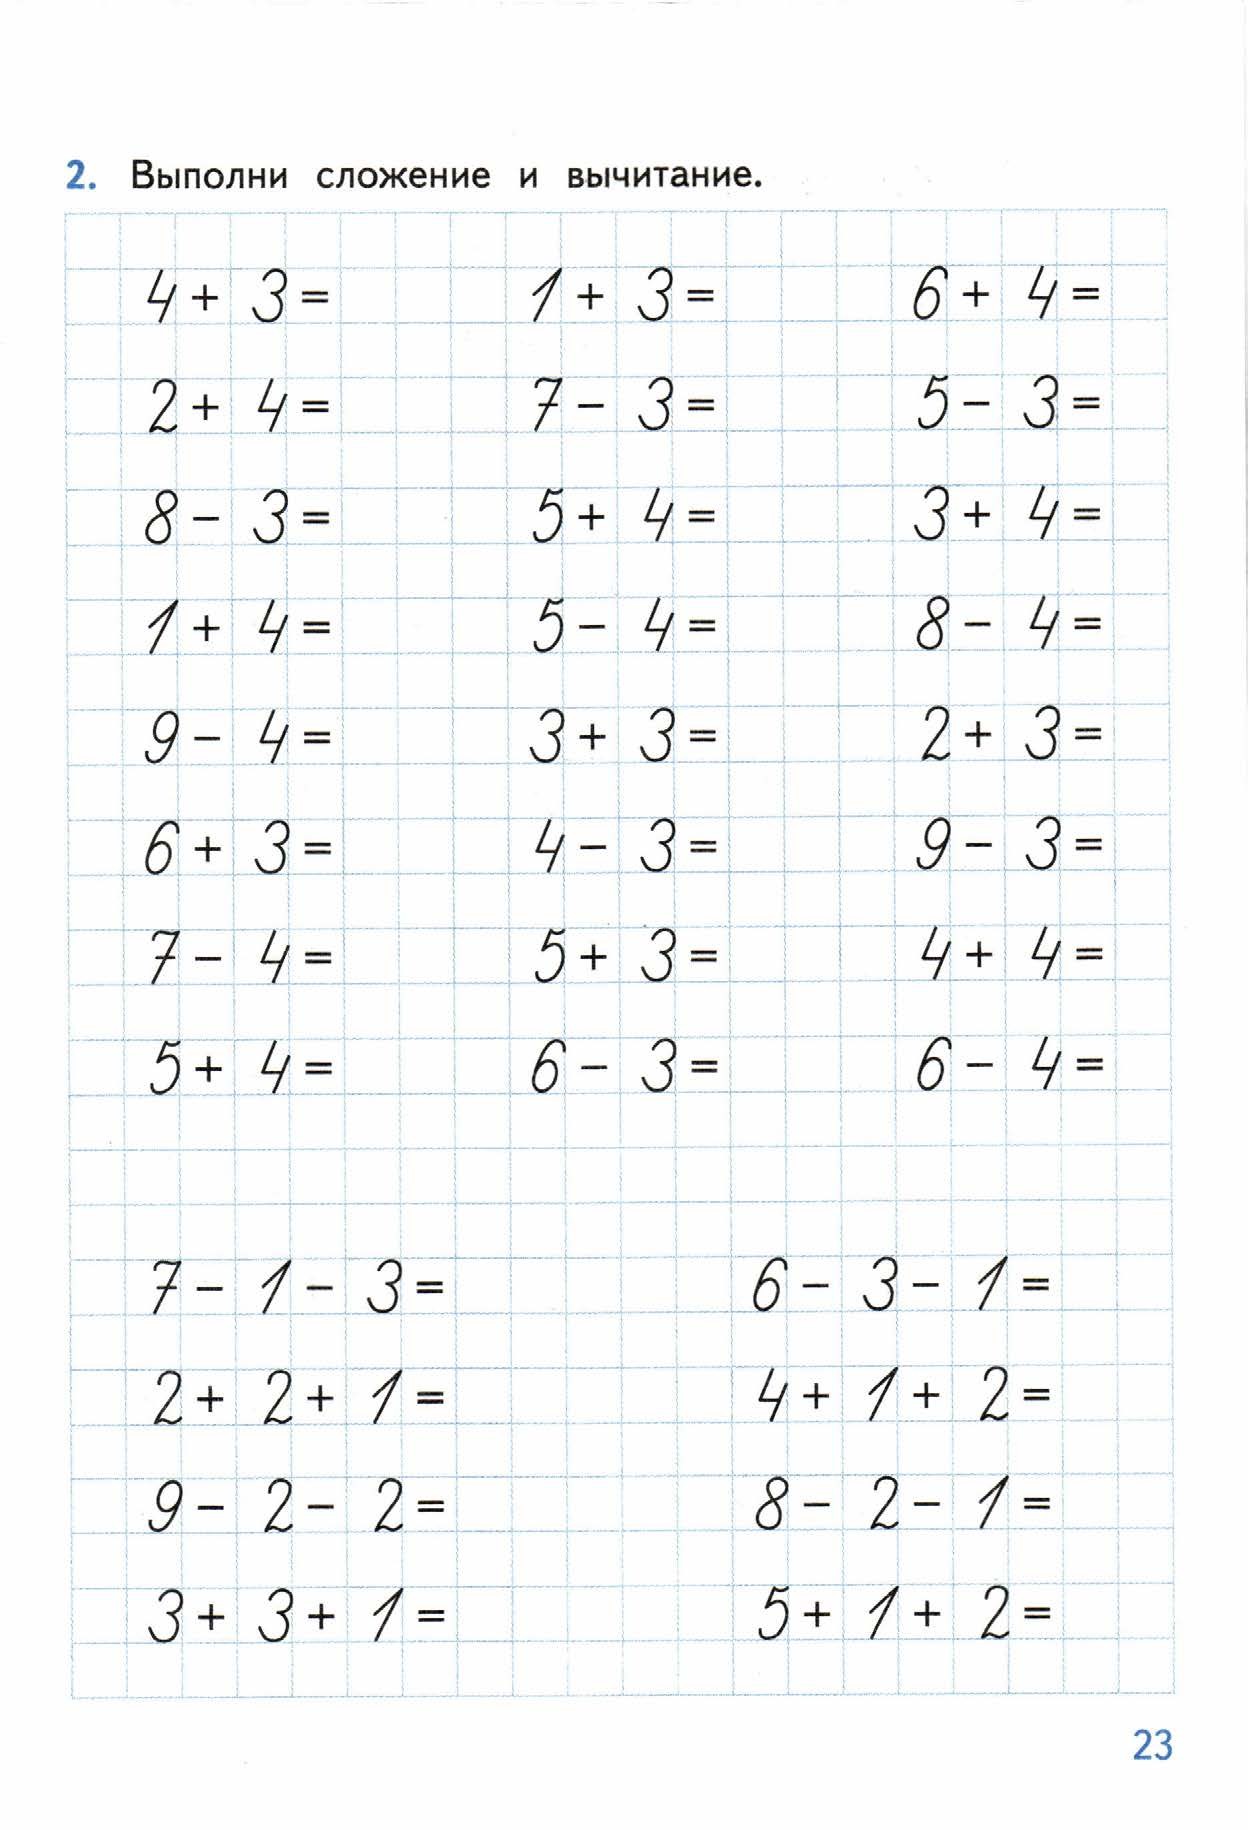 2. Выполни сложение и вычитание.
4 + 3 = 1 + 3 = 6 + 4 =
2 + 4 = 7 - 3 = 5 - 3 =
8 - 3 = 5 + 4 = 3 + 4 =
1 + 4 = 5 - 4 = 8 - 4 =
9 - 4 = 3 + 3 = 2 + 3 =
6 + 3 = 4 - 3 = 9 - 3 =
7 - 4 = 5 + 3 = 4 + 4 =
5 + 4 = 6 - 3 = 6 - 4 =
7 - 1 - 3 = 6 - 3 - 1 =
2 + 2 + 1 = 4 + 1 + 2 =
9 - 2 - 2 = 8 - 2 - 1 =
3 + 3 + 1 = 5 + 1 + 2 =
23